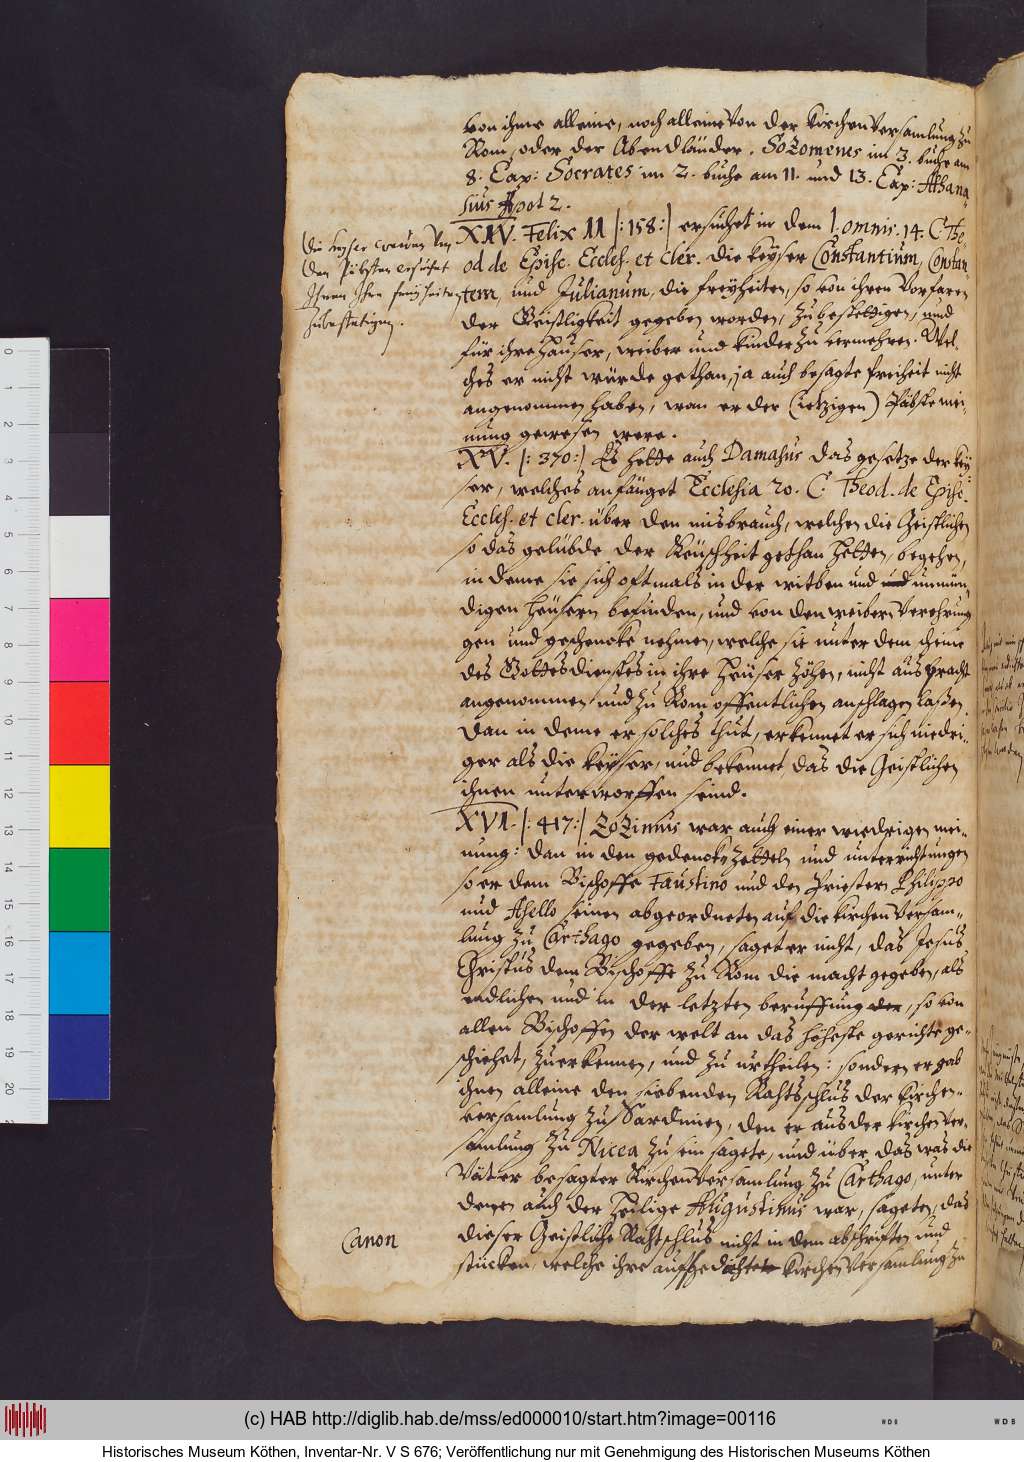 von ihme alleine, noch alleine von der Kirchen Versamlung zu
Rom, oder der Abendländer. Sozomenes im 3. buche am
8. Cap: Socrates im 2. buche am 11. und 13. Cap: Athana-
sius Apol 2.
XIV. Felix II |: 158 :| ersuchet in dem l. omnis. 14. C. The-
od de Episc. Eccles. et cler. die keyser Constantium, Constan-
tem, und Julianum, die freyheiten, so von ihren Vorfaren
der Geistligkeit gegeben worden, zubestettigen, und
für ihre häuser, weiber und kinder zu vermehren. Wel-
ches er nicht würde gethan, ja auch besagte freiheit nicht
angenommen haben, wan er der (ietzigen) Päbste mei-
nung gewesen were.
Die keyser werden von
den Päbsten ersuchet
Ihnen Ihre freyheiten
zubestetigen.
XV. |: 370 :| Es hette auch Damasus das gesetze der key-
ser, welches anfänget Ecclesia 20. C. Theod. de Episc.
Eccles. et cler. über den misbrauch, welchen die Geistlichen
so das gelübde der Keüschheit gethan hetten, begehen,
in deme sie sich oftmals in der witben und und unmün-
digen heüsern befinden, und von den weibern Verehrun-
gen und geschencke nehmen, welche sie unter dem scheine
des Gottesdienstes in ihre heüser zöhen, nicht aus pracht
angenommen, und zu Rom offentlichen anschlagen laßen.
Dan in deme er solches thut, erkennet er sich niedri-
ger als die keyser, und bekennet das die Geistlichen
ihnen unterworffen seind.
XVI. |: 417 :| Zozimus war auch einer wiedrigen mei-
nung: dan in den gedenckzetteln und unterrichtungen
so er dem Bischoffe Faustino und den Priestern Philippo
und Asello seinen abgeordneten auf die kirchen Versam-
lung zu Carthago gegeben, saget er nicht, das Jesus
Christus dem Bischoffe zu Rom die macht gegeben, als
endlichen und in der letzten beruffung der, so von
allen Bischoffen der welt an das höheste gerichte ge-
schiehet, zuerkennen, und zu urtheilen: sondern er gab
ihnen alleine den siebenden Rahtsschlus der kirchen-
versamlung zu Sardinien, den er aus der kirchen ver-
samlung zu Nicea zu sein sagete, und über das was die
Väter besagter Kirchen Versamlung zu Carthago, unter
denen auch der heilige Augustinus war, sageten, das
dieser Geistliche Rahtschlus nicht in dem abschriften und
stücken, welche ihre kirchen versamlung zu
Canon
(c) HAB http://diglib.hab.de/mss/ed000010/start.htm?image=00116
Historisches Museum Köthen, Inventar-Nr. V S 676; Veröffentlichung nur mit Genehmigung des Historischen Museums Köthen